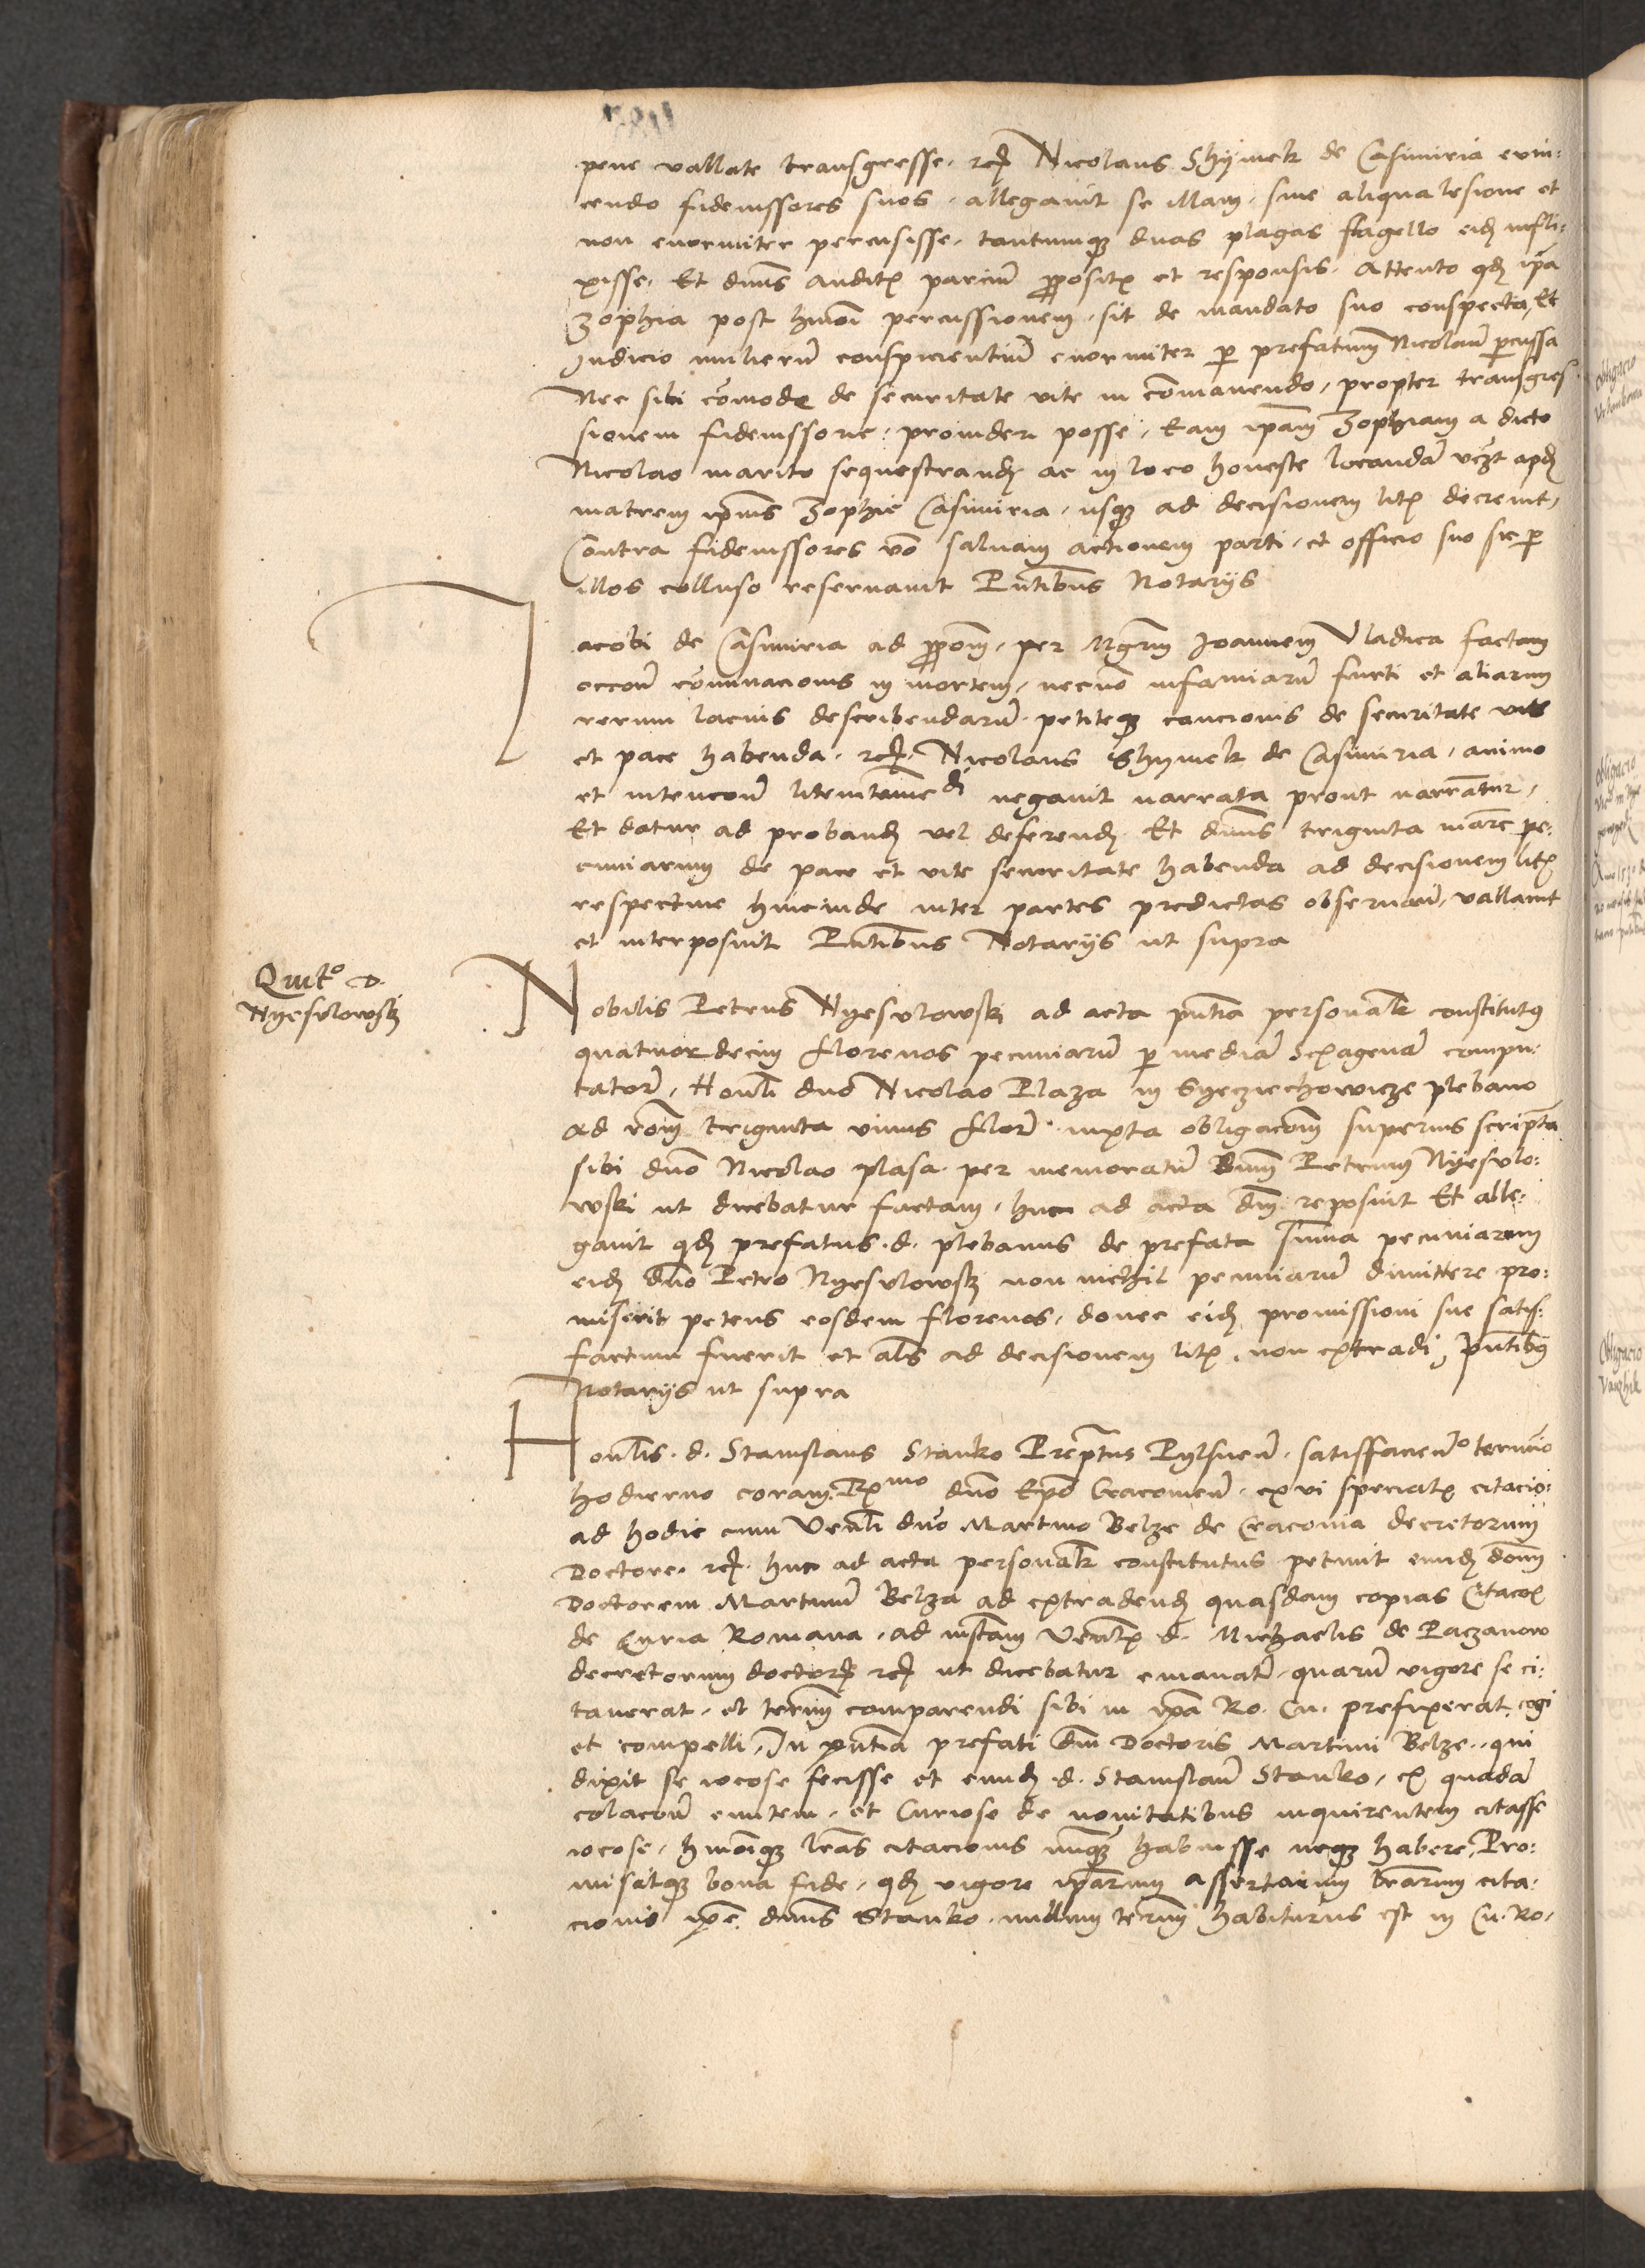 pene vallate transgresse. rej Nicolaus Shymek de Casimiria evin:
cendo fideiussores suos. allegavit se illam sine aliqua lesione et
non enormiter percussisse. tantumqz duas plagas flagello eidz infli:
xisse. Et dnus auditis parcium ppositis et responsis. Attento qdz ipa
Zophia post hmoi percussionem sit de mandato suo conspecta, Et
Judicio mulierum conspicientium enormiter per prefatum Nicolaum percussa
Nec sibi comode de securitate vite in comanendo, propter transgres
sionem fideiussorie provideri posse, Eam ipam Zophiam a dicto
Nicolao marito sequestrandz ac in loco honeste locandam vczt apdz
matrem ipius Zophie Casimiria, usqz ad decisionem litis decrevit,
Contra fideiussores vo salvam actionem parti, et officio suo sic per
illos colluso reservavit Pntibus Notarijs
Jacobi de Casimiria ad ppom, per Mgrm Joannem Vladica factam
occone cominacionis in mortem, necno infamiarum furti et aliarum
rerum lacius describendarum petiteqz caucionis de securitate vite
et pace habenda. rej Nicolaus Shymek de Casimiria, animo
et intencone litem negavit narrata prout narrantur,
Et datur ad probandz vel deferendz Et dnus triginta marc pe:
cuniarum de pace et vite securitate habenda ad decisionem litis
respective hincinde inter partes predictas observan. vallavit
et interposuit Pntibus Notarijs ut supra
Quito D.
Nyesvlowskj
Nobilis Petrus Nyesvlowski ad acta pntia personalr constitutus
quatuordecim florenos pecuniarum per mediam sexagenam compu:
tator, Honli dno Nicolao Plaza in Syeczechowicze plebano
ad rom triginta unius flor. iuxta obligacom superius scripta
sibi dno Nicolao plasa per memoratum Petrum Nyesvlo:
wski ut dicebatur factam, huc ad acta dni reposuit Et alle:
gavit qdz prefatus d. plebanus de prefata suma pecuniarum
eidz dno Petro Nyesvlowskj non nichil pecuniarum dimittere pro:
miserit petens eosdem florenos, donec eidz promissioni sue satis:
factum fuerit et als ad decisionem litis non extradi, pntibus
Notarijs ut supra
Honlis d. Stanislaus Stanko Preptus Pylsnen. satisfacien termino
hodierno coram Rmo dno Epo Cracovien. ex vi speciatis citacio:
ad hodie cum Venli dno Martino Belze de Cracovia decretorum
Doctore. rej huc ad acta personalr constitutus petivit eundz dom
Doctorem Martinum Belza ad extradendz quasdam copias Citacois
de Curia Romana, ad instam Venlis d. Michaelis de Paczanow
decretorum doctoris rej ut dicebatur emanatis, quarum vigore se ci:
taverat, et termm comparendi sibi in ipa Ro. Cu. prefixerat cogi
et compelli, In pntia prefati dni Doctoris Martini Belze, qui
dixit se iocose fecisse et eundz d. Stanislaum Stanko, ex quadam
colacone euntem, et Curiose de novitatibus inquirentem citasse
iocose, hmoiqz lras citacionis nunqz habuisse neqz habere, Pro:
misitqz bona fide, qdz vigore iparum assertarum lrarum cita:
cionis ipe dnus Stanko nullum termm habiturus est in Cu. Ro,